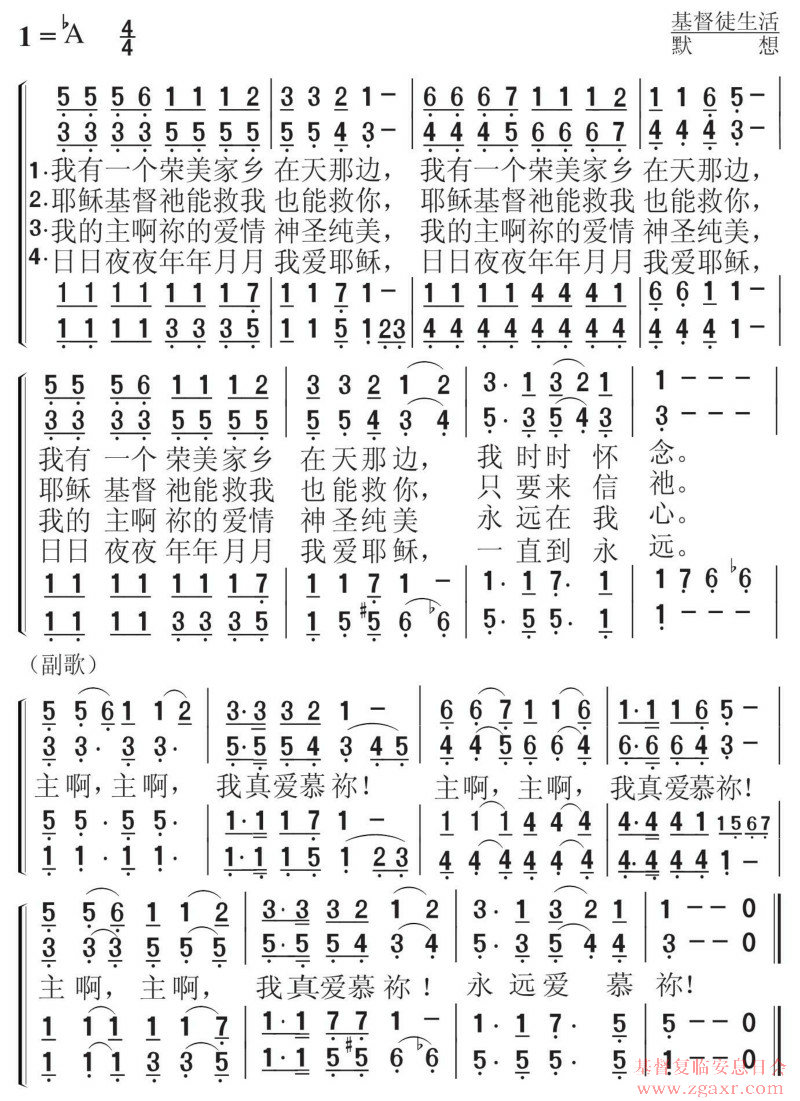 1=♭A 4/4 基督徒生活
默 想
5 5 5 6 1 1 1 2 | 3 3 2 1 – | 6 6 6 7 1 1 1 2 | 1 1 6 5 – |
3 3 3 3 5 5 5 5 | 5 5 4 3 – | 4 4 4 5 6 6 6 7 | 4 4 4 3 – |
1.我有一个荣美家乡 在天那边， 我有一个荣美家乡 在天那边，
2.耶稣基督祂能救我 也能救你， 耶稣基督祂能救我 也能救你，
3.我的主啊祢的爱情 神圣纯美， 我的主啊祢的爱情 神圣纯美，
4.日日夜夜年年月月 我爱耶稣， 日日夜夜年年月月 我爱耶稣，
1 1 1 1 1 1 1 7 | 1 1 7 1 – | 1 1 1 1 4 4 4 1 | 6 6 1 1 – |
1 1 1 1 3 3 3 5 | 1 1 5 1 23 | 4 4 4 4 4 4 4 4 | 4 4 4 1 – |
5 5 5 6 1 1 1 2 | 3 3 2 1 2 | 3· 1 3 2 1 | 1 – – – |
3 3 3 3 5 5 5 5 | 5 5 4 3 4 | 5· 3 5 4 3 | 3 – – – |
我有 一个 荣美家乡 在天那边， 我 时时 怀 念。
耶稣 基督祂能救我 也能救你， 只 要来 信 祂。
我的 主啊祢的爱情 神圣纯美 永 远在 我 心。
日日 夜夜年年月月 我爱耶稣， 一 直到 永 远。
1 1 1 1 1 1 1 7 | 1 1 7 1 – | 1· 1 7· 1 | 1 7 6 ♭6 |
1 1 1 1 3 3 3 5 | 1 5 #5 6 ♭6 | 5· 5 5· 1 | 1 – – – |
（副歌）
5 5 6 1 1 2 | 3·3 3 2 1 – | 6 6 7 1 1 6 | 1·1 1 6 5 – |
3 3· 3 3· | 5·5 5 4 3 4 5 | 4 4 5 6 6 4 | 6·6 6 4 3 – |
主啊，主啊， 我真爱慕祢！ 主啊，主啊， 我真爱慕祢！
5 5· 5 5· | 1·1 1 7 1 – | 1 1 1 4 4 4 | 4·4 4 1 1567 |
1 1· 1 1· | 1·1 1 5 1 2 3 | 4 4 4 4 4 4 | 4·4 4 4 1 – |
5 5 6 1 1 2 | 3·3 3 2 1 2 | 3· 1 3 2 1 | 1 – – 0 |
3 3 3 5 5 5 | 5·5 5 4 3 4 | 5· 3 5 4 4 | 3 – – 0 |
主 啊， 主 啊， 我 真爱慕 祢！ 永 远爱 慕 祢！
1 1 1 1 1 7 | 1·1 7 7 1 – | 1· 1 7· 5 | 5 – – 0 |
1 1 1 3 3 5 | 1·1 5 #5 6 ♭6 | 5· 5 5· 5 | 1 – – 0 |
基督复临安息日会
www.zgaxr.com